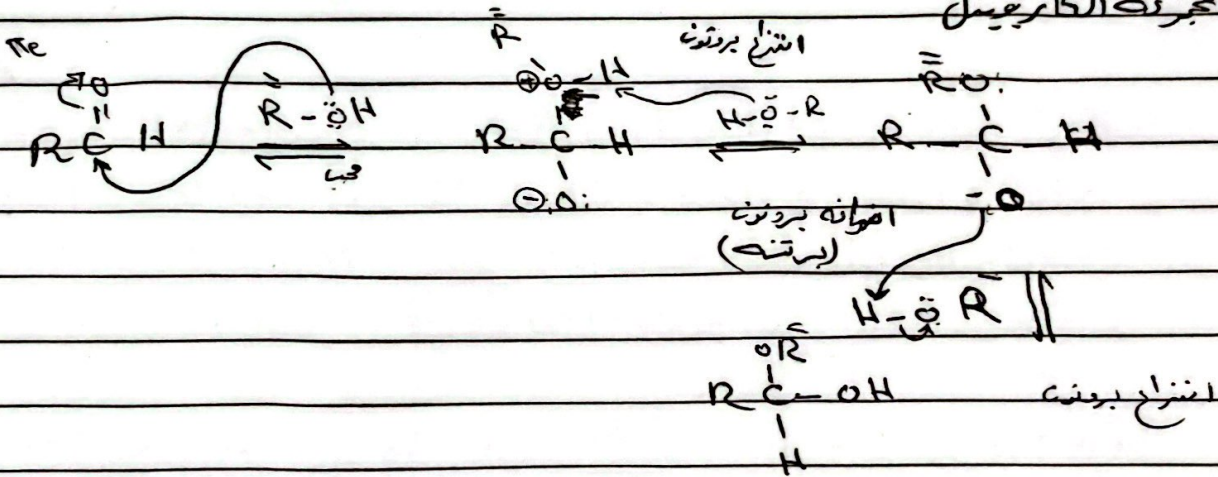 مجموعة الكاربونيل
πe
O
||
R C H
R̄ - ÖH
R̿
⊕O - H
R - C - H
|
⊖:O:
انتزاع بروتون
H-Ö-R
R̿ O:
|
R - C - H
|
-:O
اضافة بروتون
(برتنه)
H-Ö R̄
OR̄
|
R C - OH
|
H
انتزاع بروتون